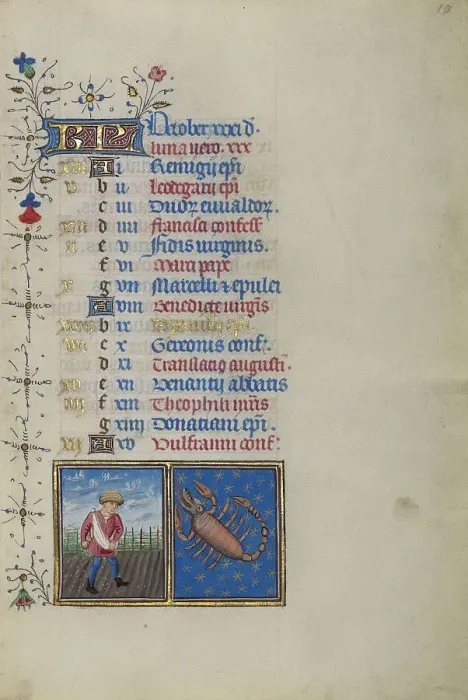 10
KL October xxxi d.
luna uero. xxx
xvi A i Remigij epi
v b ii Leodegarij epi
c iii Duor euualdor.
xiii d iiii francisci confess
ii e v fidis uirginis.
f vi Marci pape
x g vii Marcelli & epulei
A viii Benedicte uirgis
xviii b ix epi
vii c x Gereonis conf.
d xi Translacio augusti.
xv e xii Venantij abbatis
iiii f xiii Theophili mris
g xiiii Donatiani epi.
xii A xv Vulfranni conf.